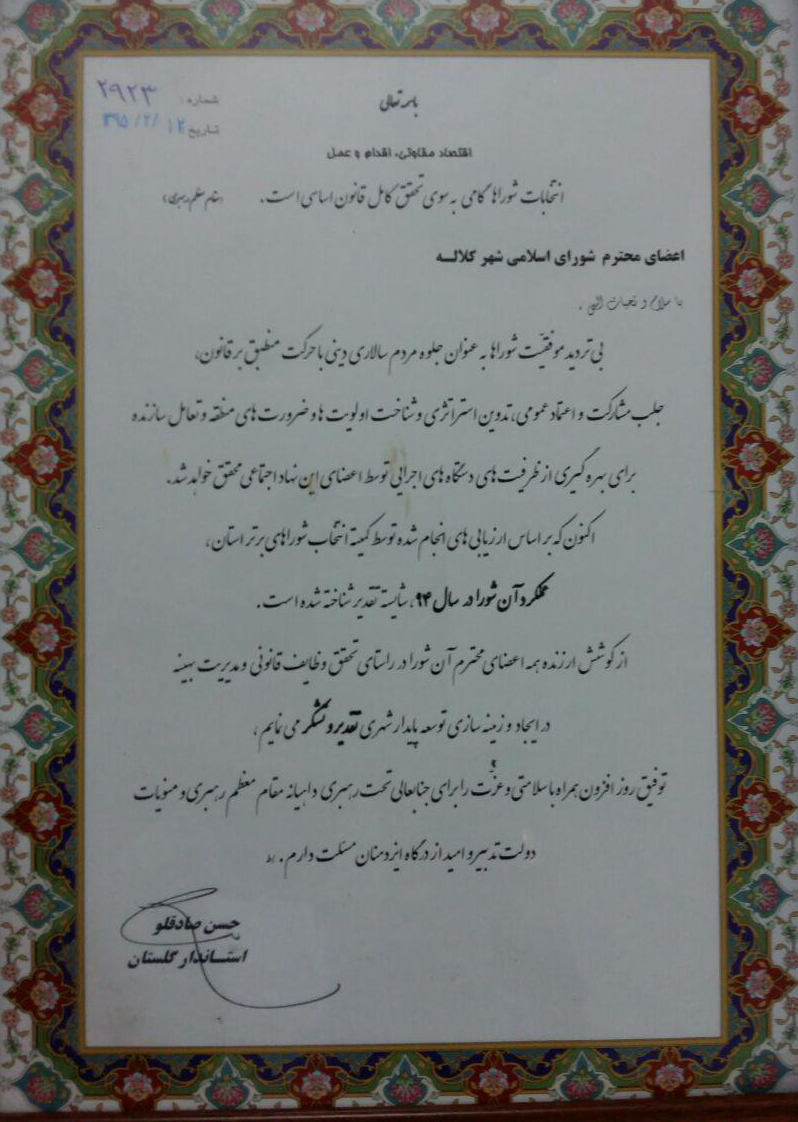 باسمه تعالی
شماره: ۲۹۲۳
تاریخ ۱۳۹۵/۲/۱۲
اقتصاد مقاوتی، اقدام و عمل
انتخابات شوراها گامی به سوی تحقق کامل قانون اساسی است. (مقام معظم رهبری)
اعضای محترم شورای اسلامی شهر کلاله
با سلام و تحیات الهی،
بی تردید موفقیّت شوراها به عنوان جلوه مردم سالاری دینی با حرکت منطبق بر قانون،
جلب مشارکت و اعتماد عمومی، تدوین استراتژی و شناخت اولویت ها و ضرورت های منطقه و تعامل سازنده
برای بهره گیری از ظرفیت های دستگاه های اجرایی توسط اعضای این نهاد اجتماعی محقق خواهد شد.
اکنون که بر اساس ارزیابی های انجام شده توسط کمیته انتخاب شوراهای برتر استان،
عملکرد آن شورا در سال ۹۴، شایسته تقدیر شناخته شده است.
از کوشش ارزنده همه اعضای محترم آن شورا در راستای تحقق وظایف قانونی و مدیریت بهینه
در ایجاد و زمینه سازی توسعه پایدار شهری تقدیر و تشکر می نمایم،
توفیق روز افزون همراه با سلامتی و عزت را برای جنابعالی تحت رهبری داهیانه مقام معظم رهبری و منویات
دولت تدبیر و امید از درگاه ایزد منان مسئلت دارم.
حسن صادقلو
استاندار گلستان